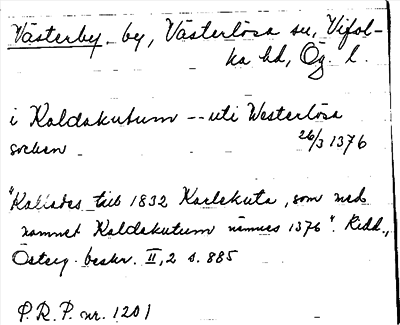 Västerby by, Västerlösa sn, Vifol-
ka hd, Ög. l.
i Kaldakutum -- uti Westerlösa
socken 26/3 1376
"Kallades till 1832 Karlekuta, som med
namnet Kaldakutum nämnes 1376". Ridd.,
Österg. beskr. II,2 s. 885
P.R.P. nr. 1201